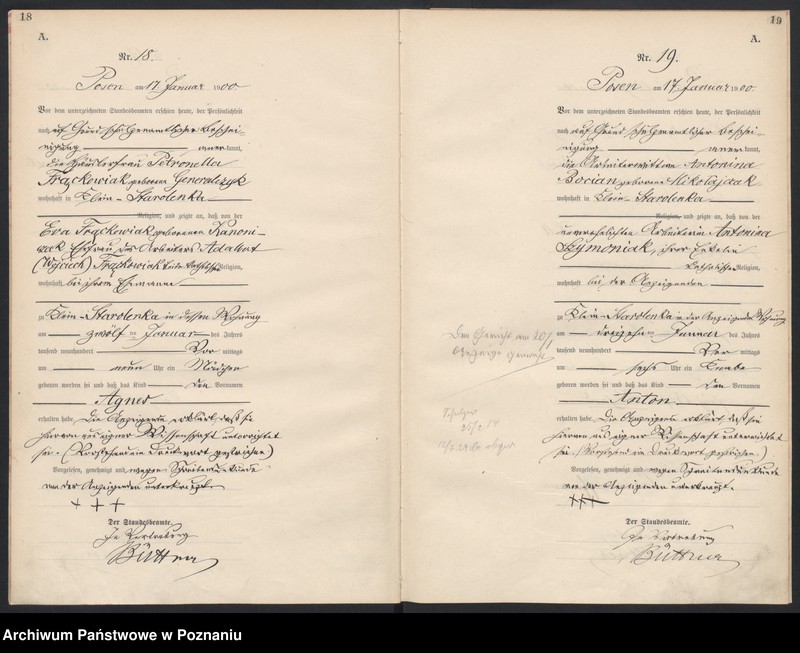 18
A.
Nr. 18.
Posen am 17. Januar 1900
Vor dem unterzeichneten Standesbeamten erschien heute, der Persönlichkeit
nach auf Grund schulzenamtlicher Beschei-
nigung anerkannt,
die Häuslerfrau Petronella
Frąckowiak geborene Generalczyk
wohnhaft in Klein-Starolenka
Religion, und zeigte an, daß von der
Eva Frąckowiak geborenen Kanoni-
czak Ehefrau des Arbeiters Adalbert
(Wojciech) Frąckowiak beide katholischer Religion,
wohnhaft bei ihrem Ehemanne
zu Klein-Starolenka in dessen Wohnung
am zwölften Januar des Jahres
tausend neunhundert Vor mittags
um neun Uhr ein Mädchen
geboren worden sei und daß das Kind den Vornamen
Agnes
erhalten habe. Die Anzeigende erklärt, daß sie
hiervon aus eigner Wissenschaft unterrichtet
sei. (Vorstehend ein Druckwort gestrichen)
Vorgelesen, genehmigt und wegen Schreibensunkunde
von der Anzeigenden unterkreuzt.
+ + +
Der Standesbeamte.
In Vertretung
Büttner
19
A.
Nr. 19.
Posen am 17. Januar 1900
Vor dem unterzeichneten Standesbeamten erschien heute, der Persönlichkeit
nach auf Grund schulzenamtlicher Beschei-
nigung anerkannt,
die Arbeiterwittwe Antonina
Bocian geborene Mikołajczak
wohnhaft in Klein-Starolenka
Religion, und zeigte an, daß von der
unverehelichten Arbeiterin Antonina
Szymoniak, ihrer Enkelin
katholischer Religion,
wohnhaft bei der Anzeigenden
zu Klein-Starolenka in der Anzeigenden Wohnung
am dreizehnten Januar des Jahres
tausend neunhundert Vor mittags
um sechs Uhr ein Knabe
geboren worden sei und daß das Kind den Vornamen
Anton
erhalten habe. Die Anzeigende erklärt, daß sie
hiervon aus eigner Wissenschaft unterrichtet
sei. (Vorstehend ein Druckwort gestrichen.)
Vorgelesen, genehmigt und wegen Schreibensunkunde
von der Anzeigenden unterkreuzt.
+++
Der Standesbeamte.
In Vertretung
Büttner
Dem Gericht am 20/1
Anzeige gemacht
Archiwum Państwowe w Poznaniu